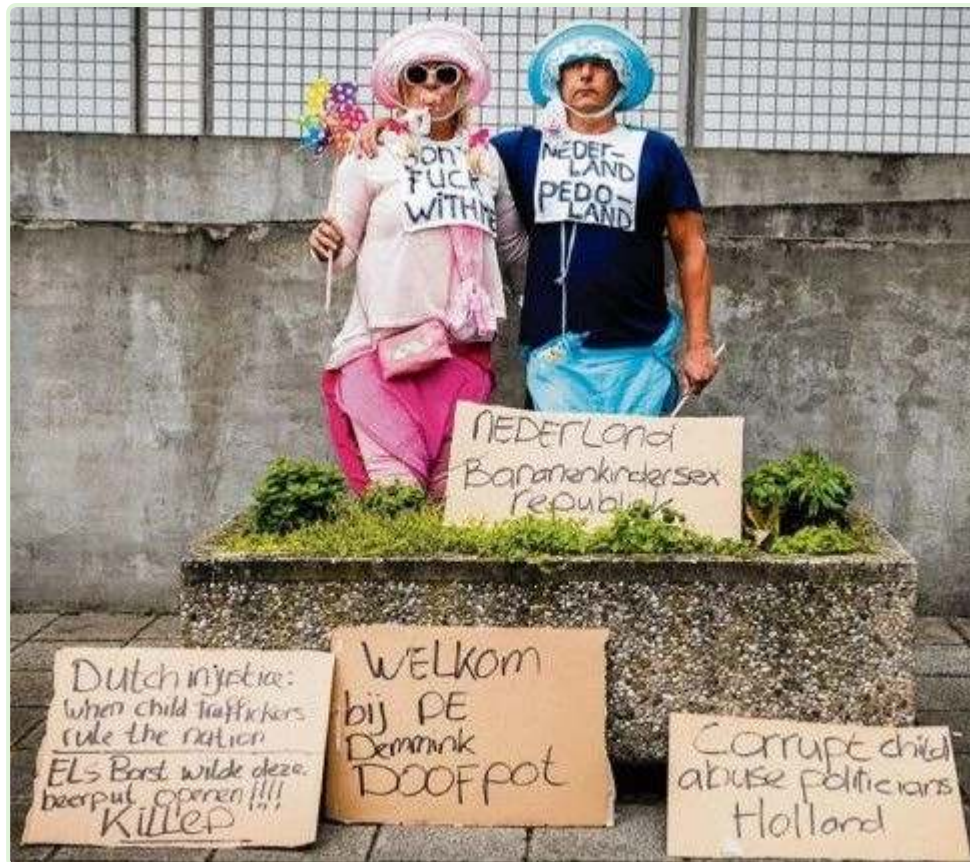 DON'T
FUCK
WITH ME
NEDER-
LAND
PEDO-
LAND
NEDERLAND
Bananenkindersex
republiek
Dutch injustice:
when child traffickers
rule the nation
ELS Borst wilde deze
beerput openen!!!!
Killed
WELKOM
bij DE
Demmink
DOOFPOT
Corrupt child
abuse politicians
Holland